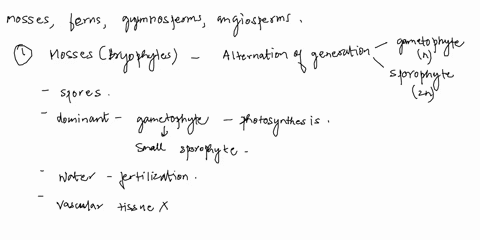 mosses, ferns, gymnosperms, angiosperms.
① Mosses (Bryophytes) - Alternation of generation - gametophyte (n)
sporophyte (2n)
- spores.
- dominant - gametophyte - photosynthesis.
↓
small sporophyte.
- Water - fertilization.
- vascular tissue X